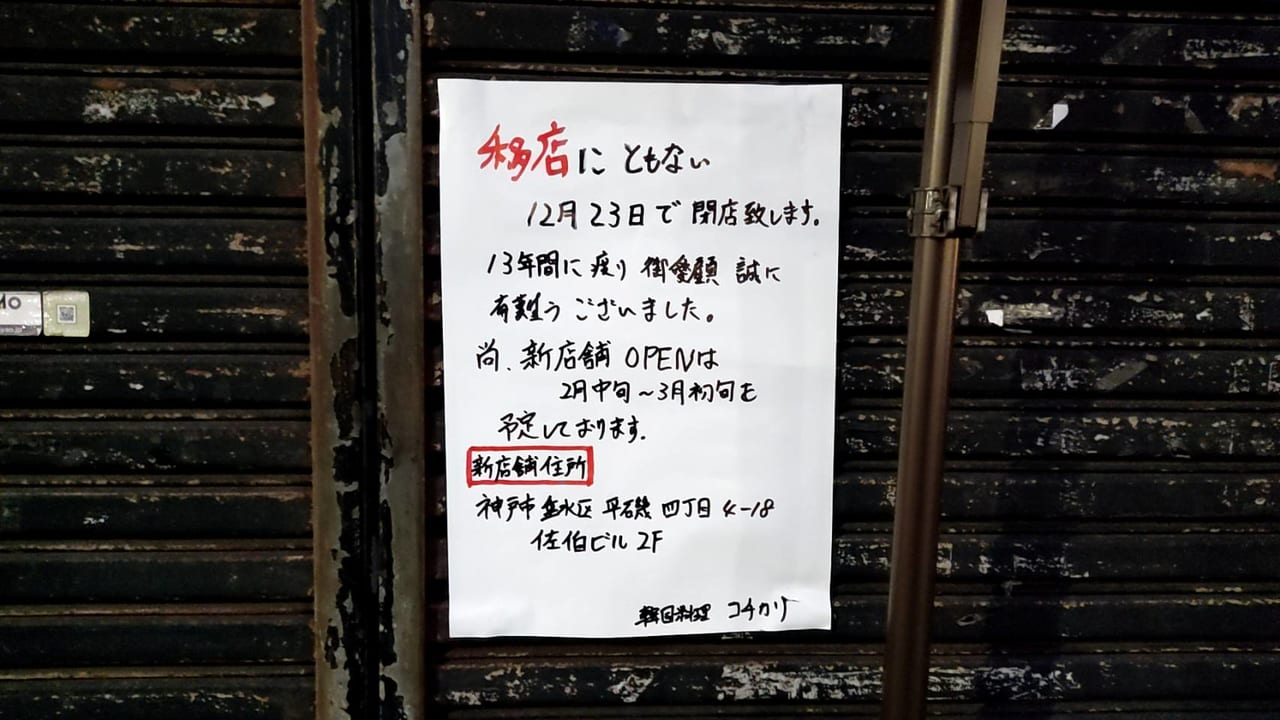 移店にともない
12月23日で閉店致します。
13年間に痕り御愛顧 誠に
有難うございました。
尚、新店舗 OPENは
2月中旬～3月初旬を
予定しております.
新店舗住所
神戸市垂水区 平磯 四丁目 4-18
佐伯ビル 2F
韓国料理 コチカリ